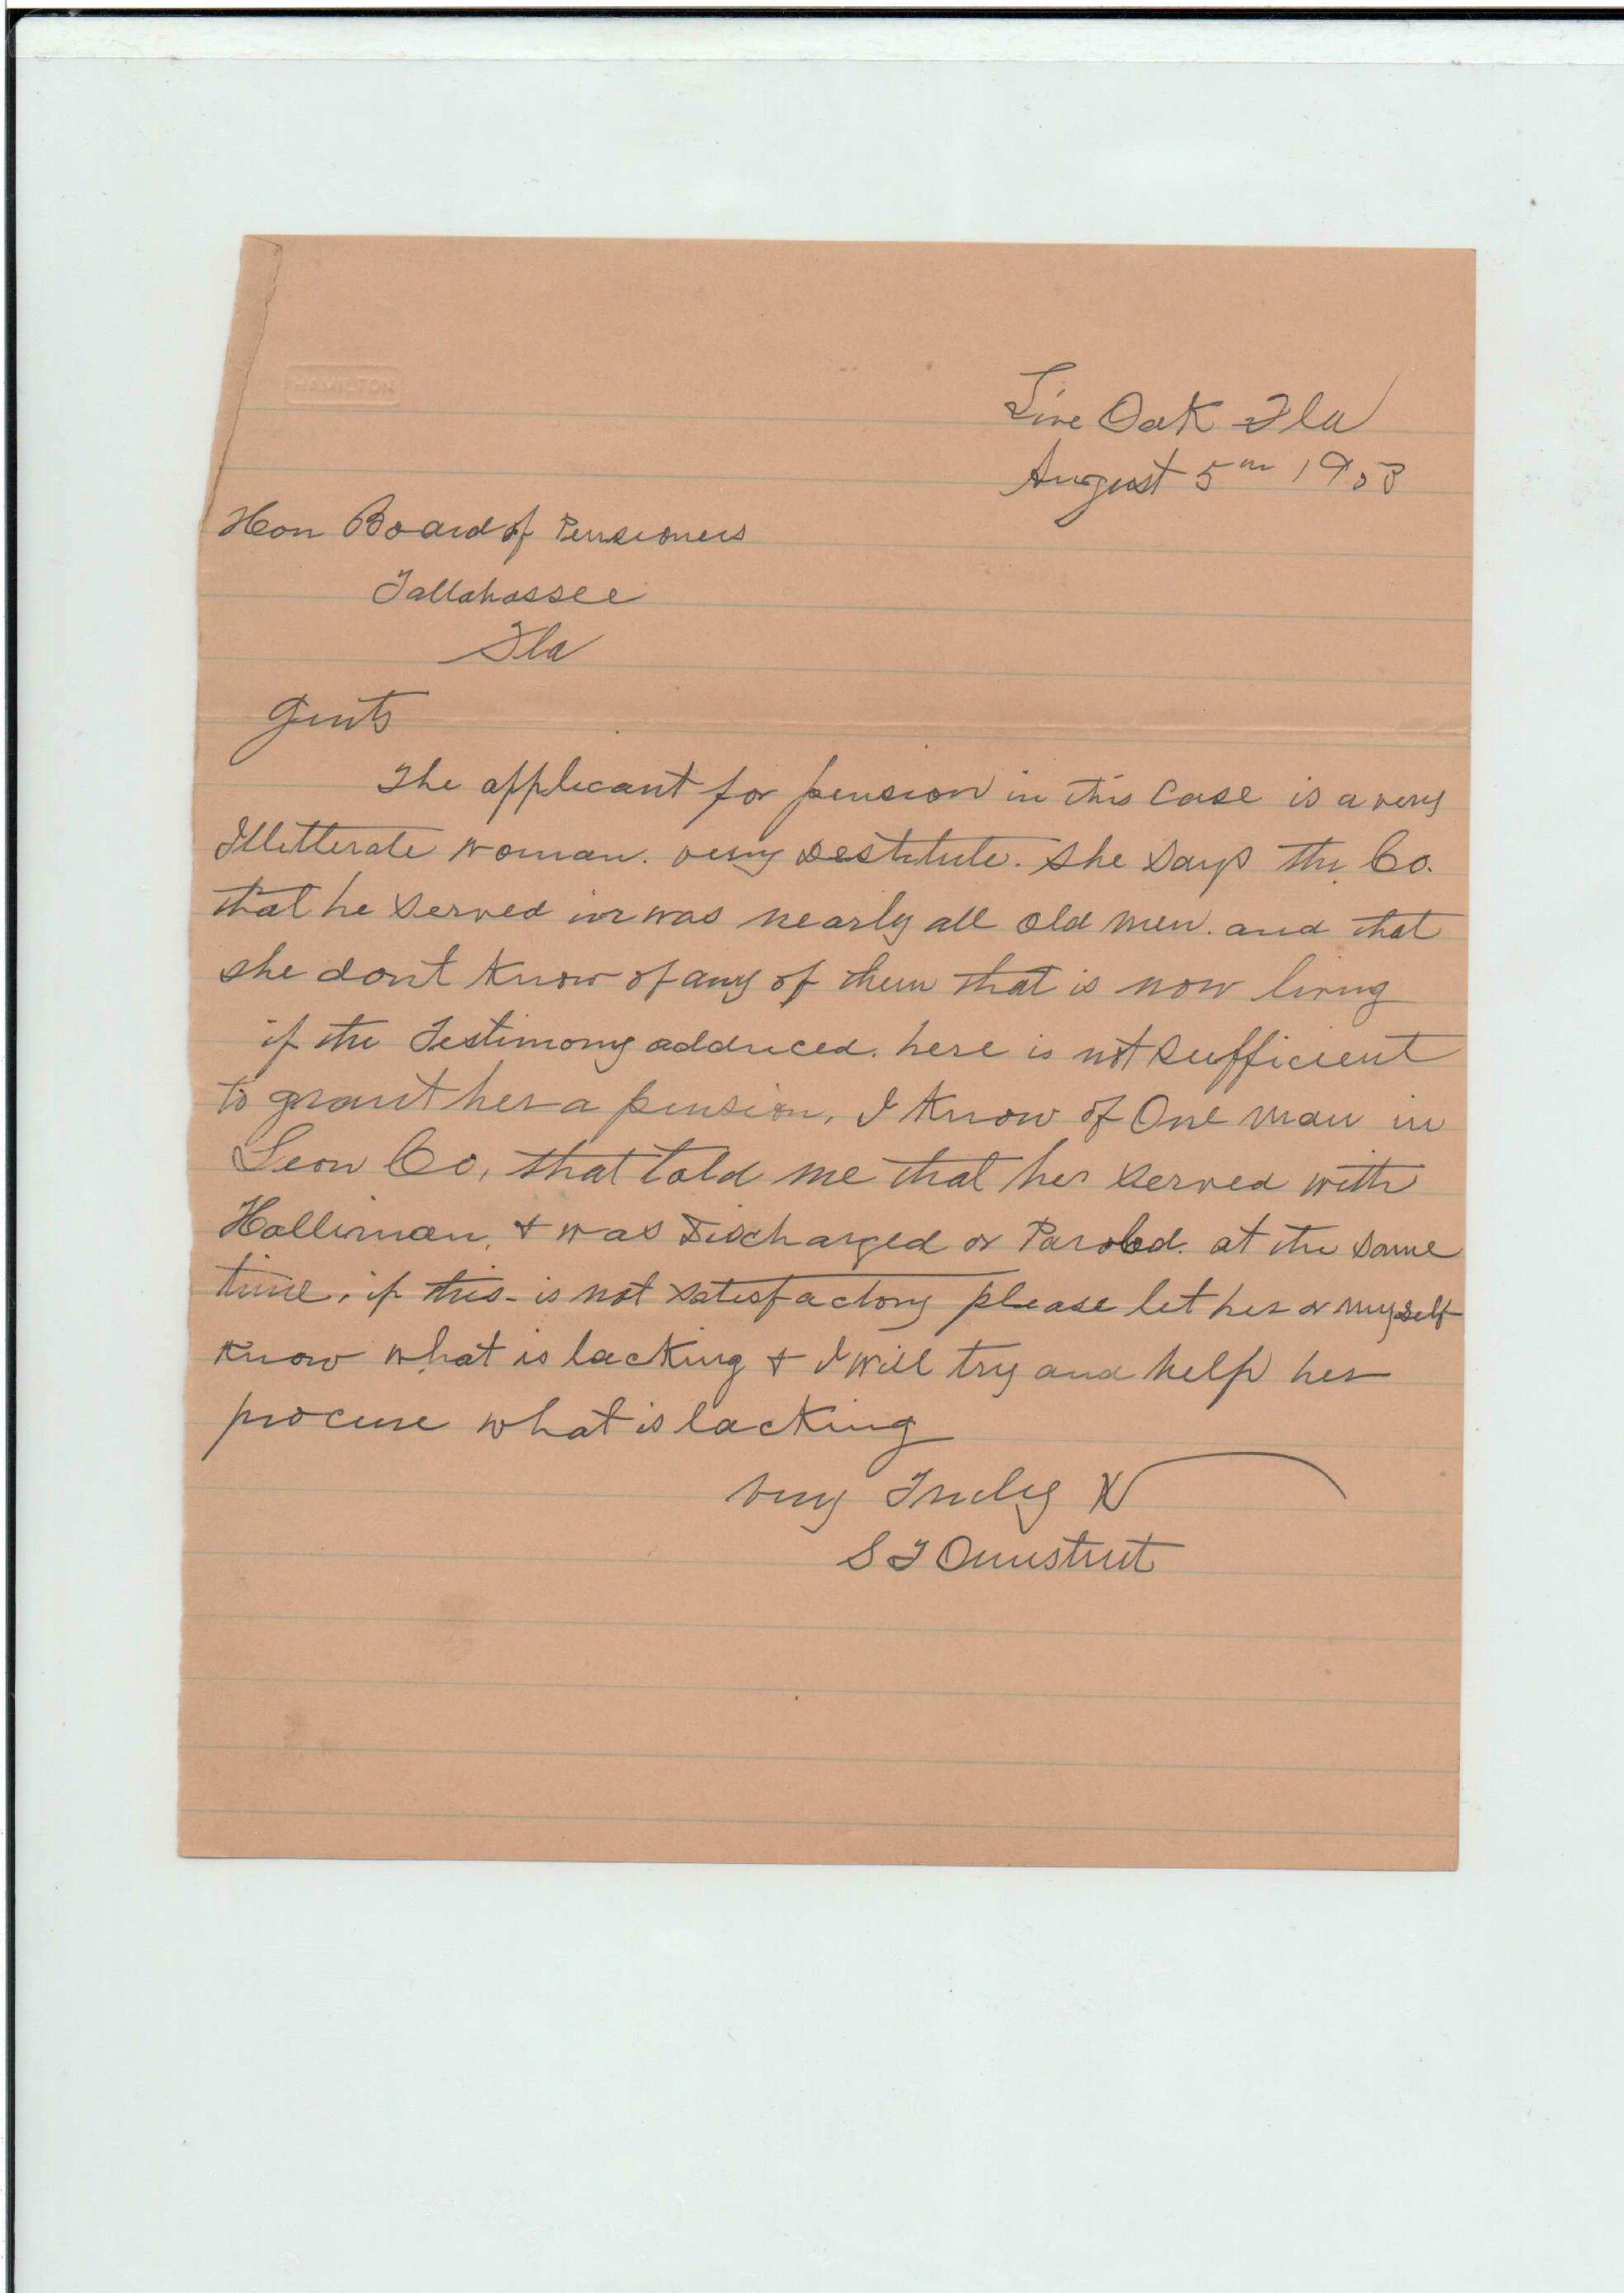 HAMILTON
Live Oak Fla
August 5th 1903
Hon Board of Pensioners
Tallahassee
Fla
Gents
The applicant for pension in this Case is a very
Illitterate woman. very destitute. She says the Co.
that he served in was nearly all old men. and that
she dont know of any of them that is now living
if the Testimony adduced. here is not sufficient
to grant her a pension, I know of One man in
Leon Co, that told me that he served with
Holliman, & was Discharged or Paroled. at the same
time, if this is not satisfactory please let her or myself
know what is lacking & I will try and help her
procure what is lacking
Very Truly
S T